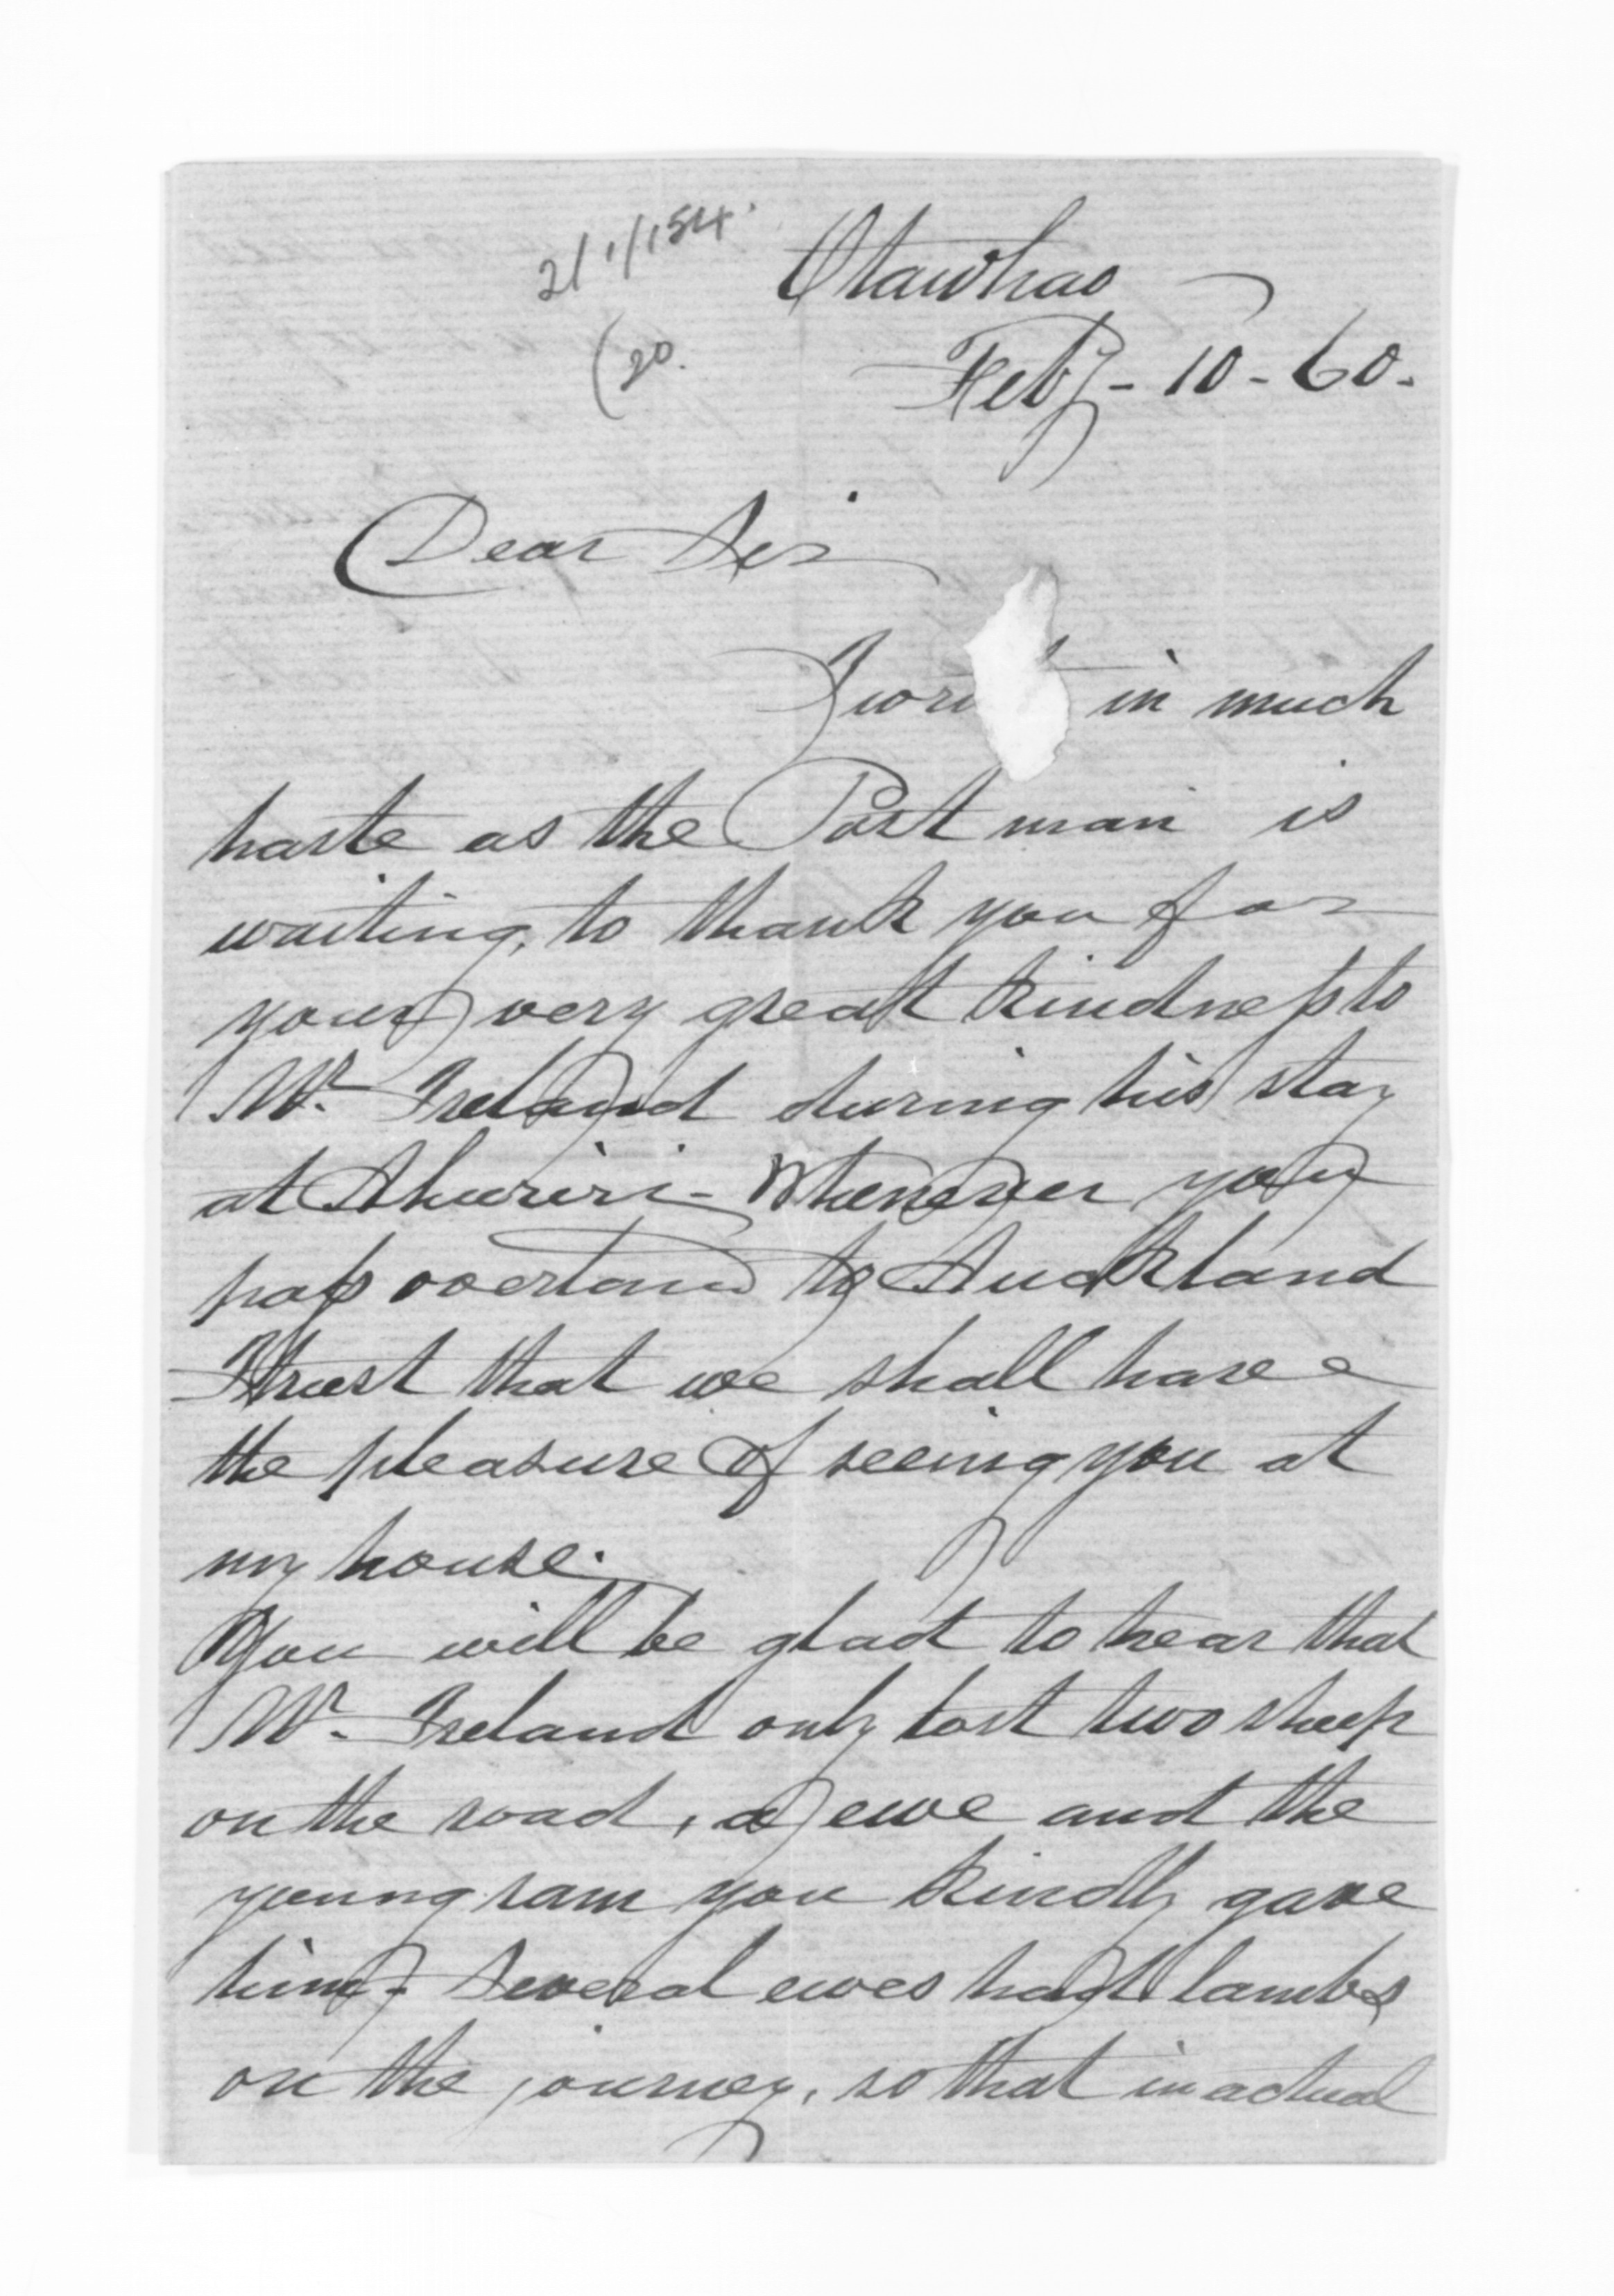 2/1/154.
(20.
Otawhao
Feby - 10 - 60.
Dear Sir
I in much
haste as the Postman is
waiting, to thank you for
your very great kindness to
Mr. Ireland during his stay
at Ahuriri - Whenever you
pass overland to Auckland
I trust that we shall have
the pleasure of seeing you at
my house.
You will be glad to hear that
Mr. Ireland only lost two sheep
on the road, a ewe and the
young ram you kindly gave
him - Several ewes had lambs
on the journey, so that in actual